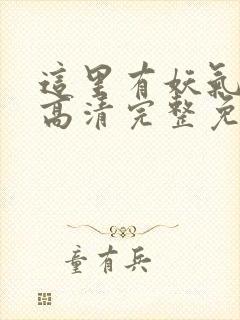 這里有妖氣
高清完整免
童有兵